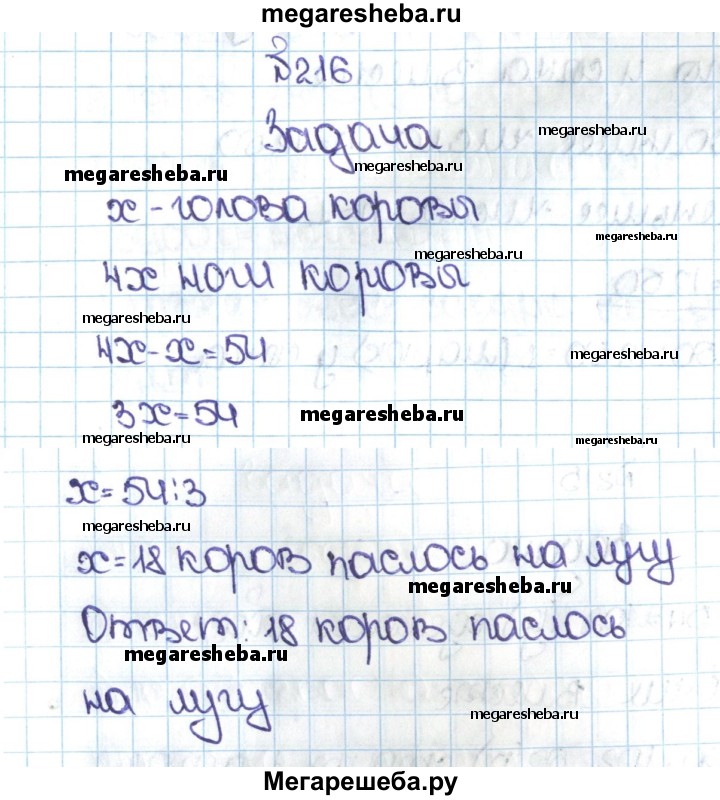 megaresheba.ru
№216
Задача
megaresheba.ru
megaresheba.ru
megaresheba.ru
х - голова коровы
megaresheba.ru
megaresheba.ru
4х ноги коровы
megaresheba.ru
4х-х=54
megaresheba.ru
3х=54
megaresheba.ru
megaresheba.ru
megaresheba.ru
х=54:3
megaresheba.ru
х=18 коров паслось на лугу
megaresheba.ru
Ответ: 18 коров паслось
megaresheba.ru
на лугу
megaresheba.ru
Мегарешеба.ру